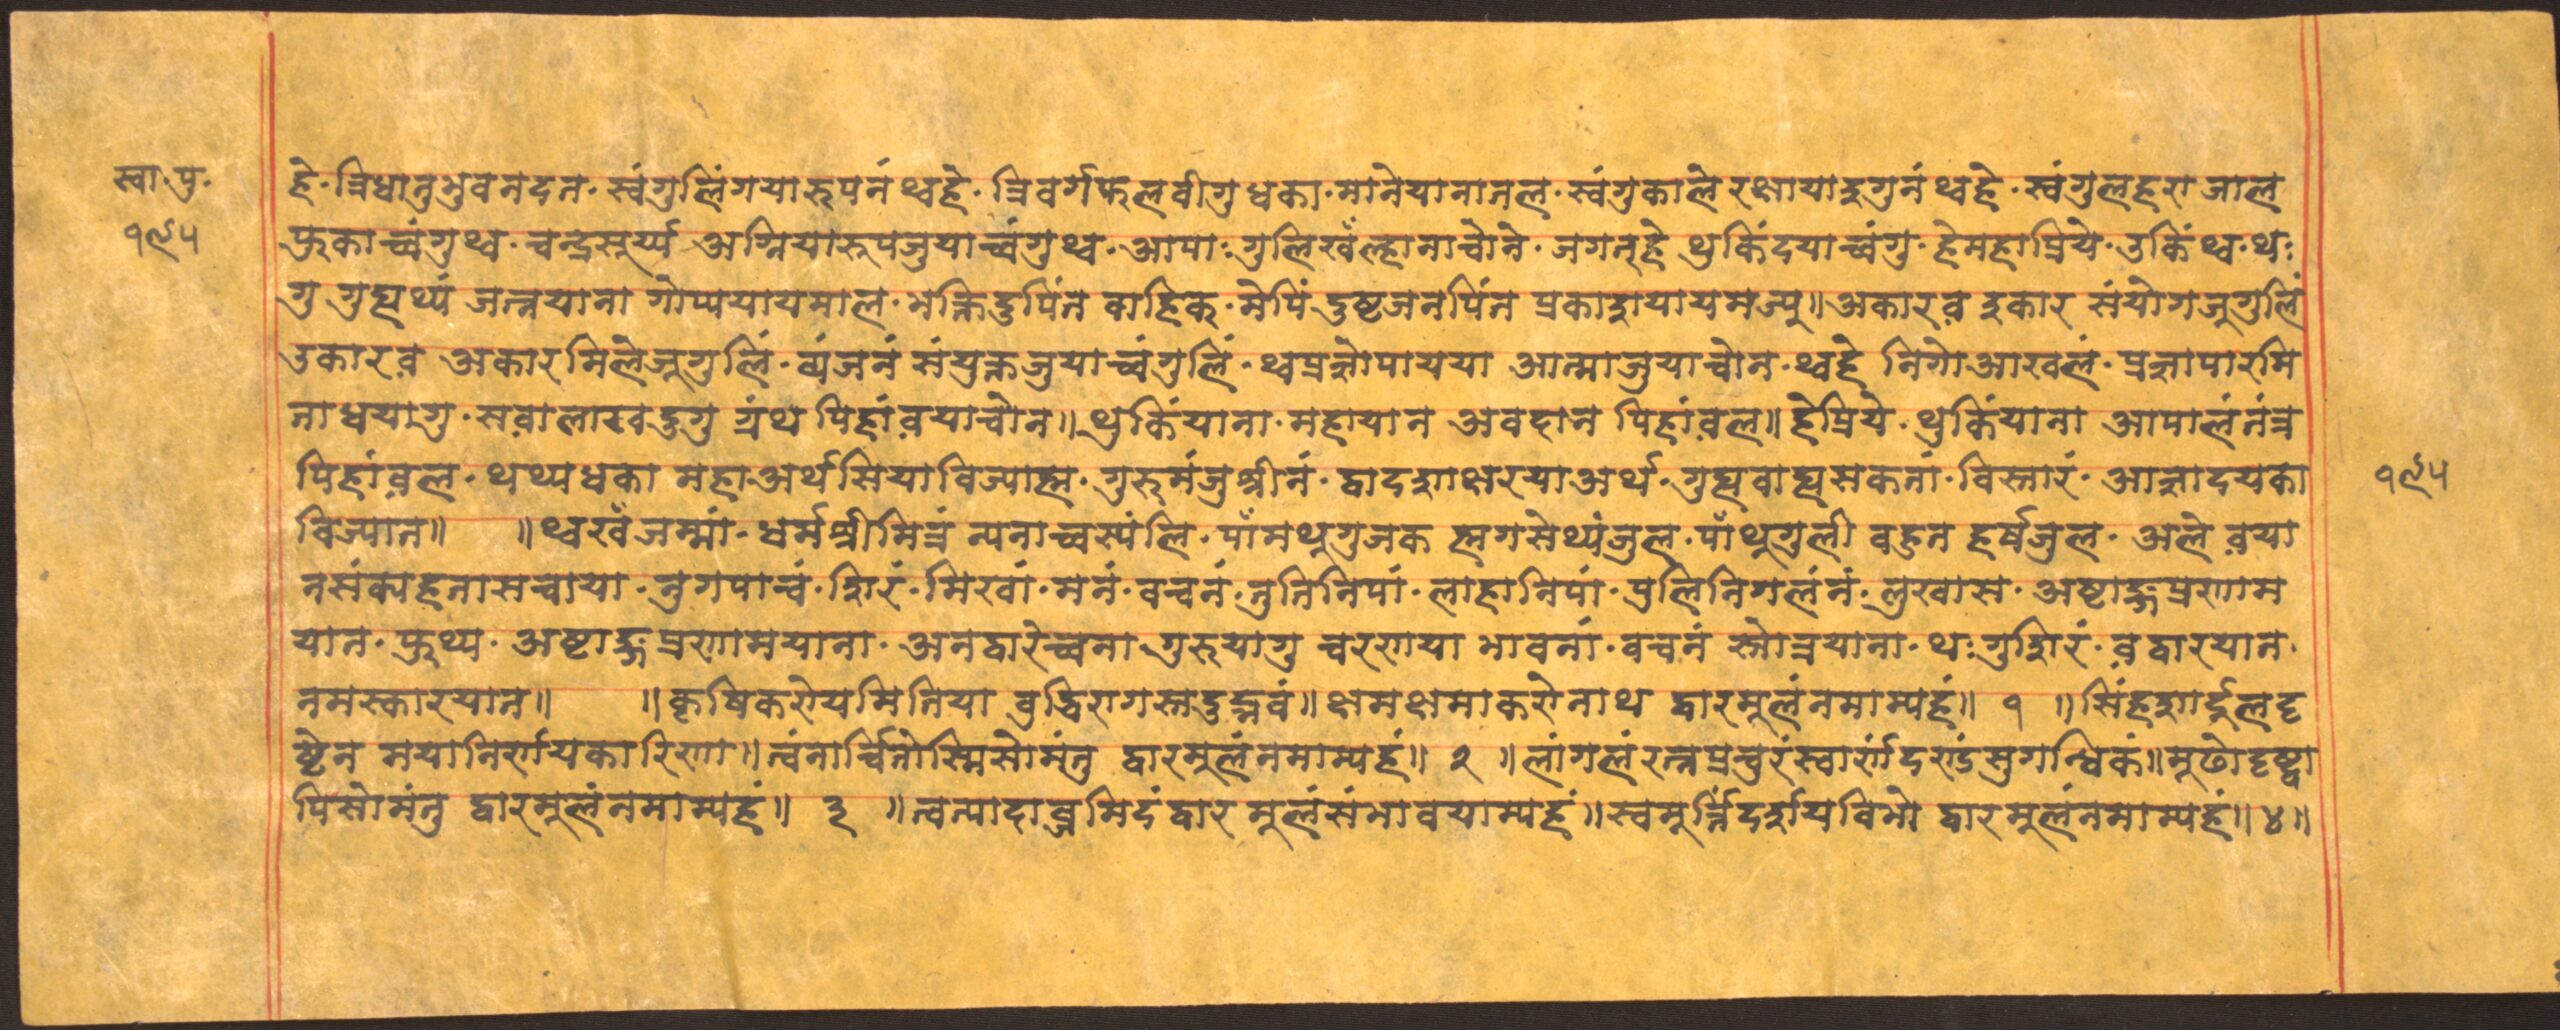 स्वा॰पु॰
१९५
हे॰त्रिधातुभुवनदत॰स्वंगुलिंगयारूपनं थ्वहे॰त्रिवर्गफलवीगु धका॰मानेयानातल॰स्वंगुकाले रक्षायाइगुनं थ्वहे॰स्वंगुलहरा जाल
फुकाच्वंगुथ्व॰चन्द्रसूर्य्य अग्नियारूपजुयाच्वंगुथ्व॰आपाः गुलिखँल्हानाचोने॰जगत्हे थुकिंदयाच्वंगु॰हेमहाप्रिये॰उकिं थ्व॰थः
गु गुह्यर्थ्यं जत्नयाना गोप्ययायमाल॰भक्तिदुपिंत बाहिक॰मेपिं दुष्टजनपिंत प्रकाशयायमज्यु॥अकारव़ इकार संयोगजूगुलिं
उकारव़ अकारमिलेजूगुलिं॰व्यंजनं संयुक्तजुयाच्वंगुलिं॰थ्वप्रज्ञोपायया आत्माजुयाचोन॰थ्वहे निगोआखलं॰प्रज्ञापारमि
ताधयागु॰सव़ालाखदुगु ग्रंथ पिहांव़याचोन॥थुकिंयाना॰महायान अवदान पिहांव़ल॥हेप्रिये॰थुकिंयाना आपालंतंत्र
पिहांव़ल॰थथ्यधका महाअर्थसियाविज्याह्म॰गुरुमंजुश्रीनं॰द्वादशाक्षरयाअर्थ॰गुह्यबाह्यसकतां॰विस्तारं॰आज्ञादयका
विज्यात॥ ॥थ्वखँजम्मां॰धर्मश्रीमित्रं न्यनाच्वस्यंलि॰पाँमथुगुजक ल्हगसेथ्यंजुल॰पाँथुगुली बहुत हर्षजुल॰अले व़या
तसंक्यहनासचाया॰नुगपाचं॰शिरं॰मिखां॰मनं॰वचनं॰तुतिनिपां॰लाहानिपां॰पुलिनिगलंनं॰लुखास॰अष्टाङ्गप्रणाम
यात॰फुथ्य॰अष्टाङ्गप्रणामयाना॰अनद्वारेच्वना॰गुरुयागु चरणया भावनां॰वचनं स्तोत्रयाना॰थःगुशिरं॰व़द्वारयात॰
नमस्कारयात॥ ॥कृषिकरोयमितिया बुद्धिरागस्तदुद्भवं॥क्षमक्षमाकरोनाथ द्वारमूलंनमाम्यहं॥ १ ॥सिंहशार्दुलदृ
ष्टेन मयानिर्णयकारिणा॥त्वंनार्च्चितोस्मिसोमंतु द्वारमूलंनमाम्यहं॥ २ ॥लांगलंरत्नप्रचुरंस्वार्णदण्डंसुगन्धिकं॥मूढोदृष्ट्वा
पिसोमंतु द्वारमूलंनमाम्यहं॥ ३ ॥त्वत्पादाब्जमिदंद्वार मूलंसंभावयाम्यहं॥स्वमूर्त्तिंदर्शयविभो द्वारमूलंनमाम्यहं॥४॥
१९५